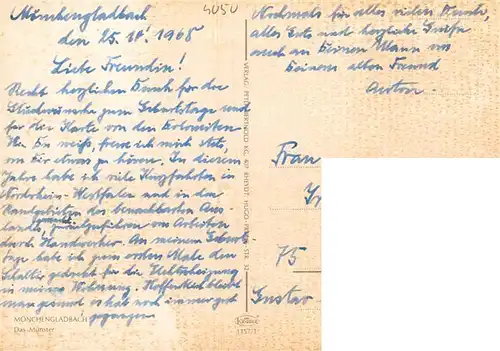 Mönchengladbach
4050
den 25. IV. 1968
Liebe Freundin!
Recht herzlichen Dank für die
Glückwünsche zum Geburtstage und
für die Karte von den Dolomiten
Wie Du weißt, freue ich mich stets,
von Dir etwas zu hören. In diesem
Jahre habe ich viele Kurzfahrten in
Nordrhein-Westfalen und in den
Randgebieten des benachbarten Aus-
landes, von Arbeiten
durch Handwerker. An meinem Geburts
tage habe ich zum ersten Male den
Schalter gedreht für die Elektroheizung
in meiner Wohnung. Hoffentlich bleibt
man gesund es hat noch immer gut
gegangen
MÖNCHENGLADBACH
Das Münster
Nochmals für alles vielen Dank,
alles Gute und herzliche Grüße
auch an Deinen Mann von
Deinem alten Freund
Anton
VERLAG PETER BERTHOLD KG, 407 RHEYDT, HUGO-PREUSS-STR. 32
Frau
75
Gustav
Krüger
1157/1